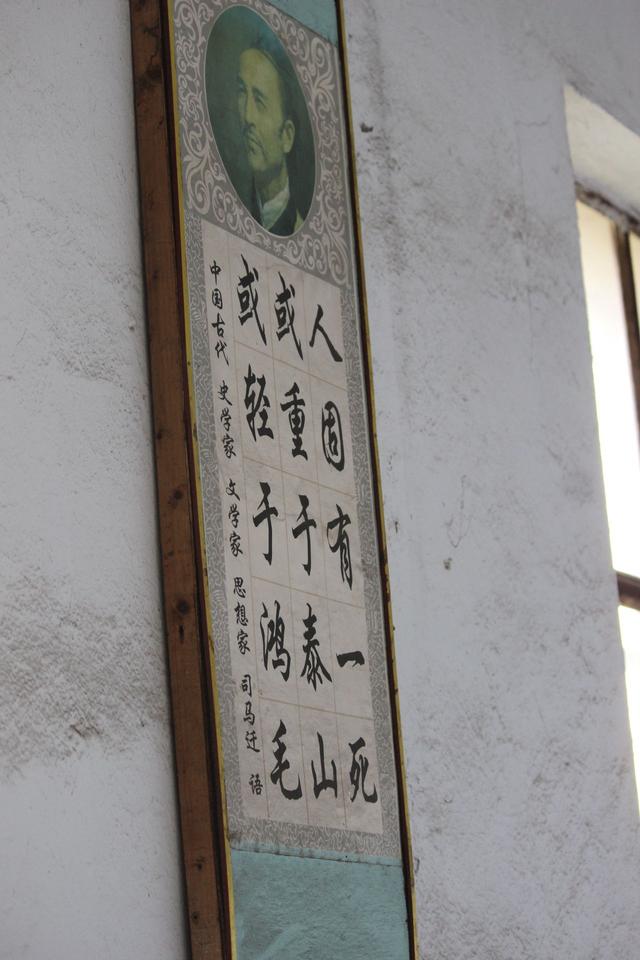 人固有一死
或重于泰山
或轻于鸿毛
中国古代 史学家 文学家 思想家 司马迁 语